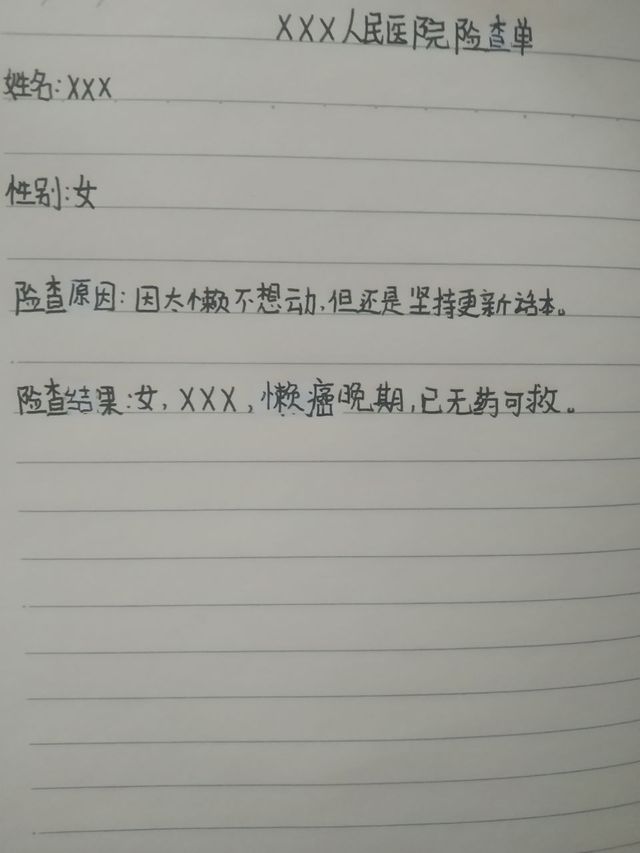 XXX人民医院险查单
姓名:XXX
性别:女
险查原因:因太懒不想动,但还是坚持更新话本。
险查结果:女,XXX,懒癌晚期,已无药可救。